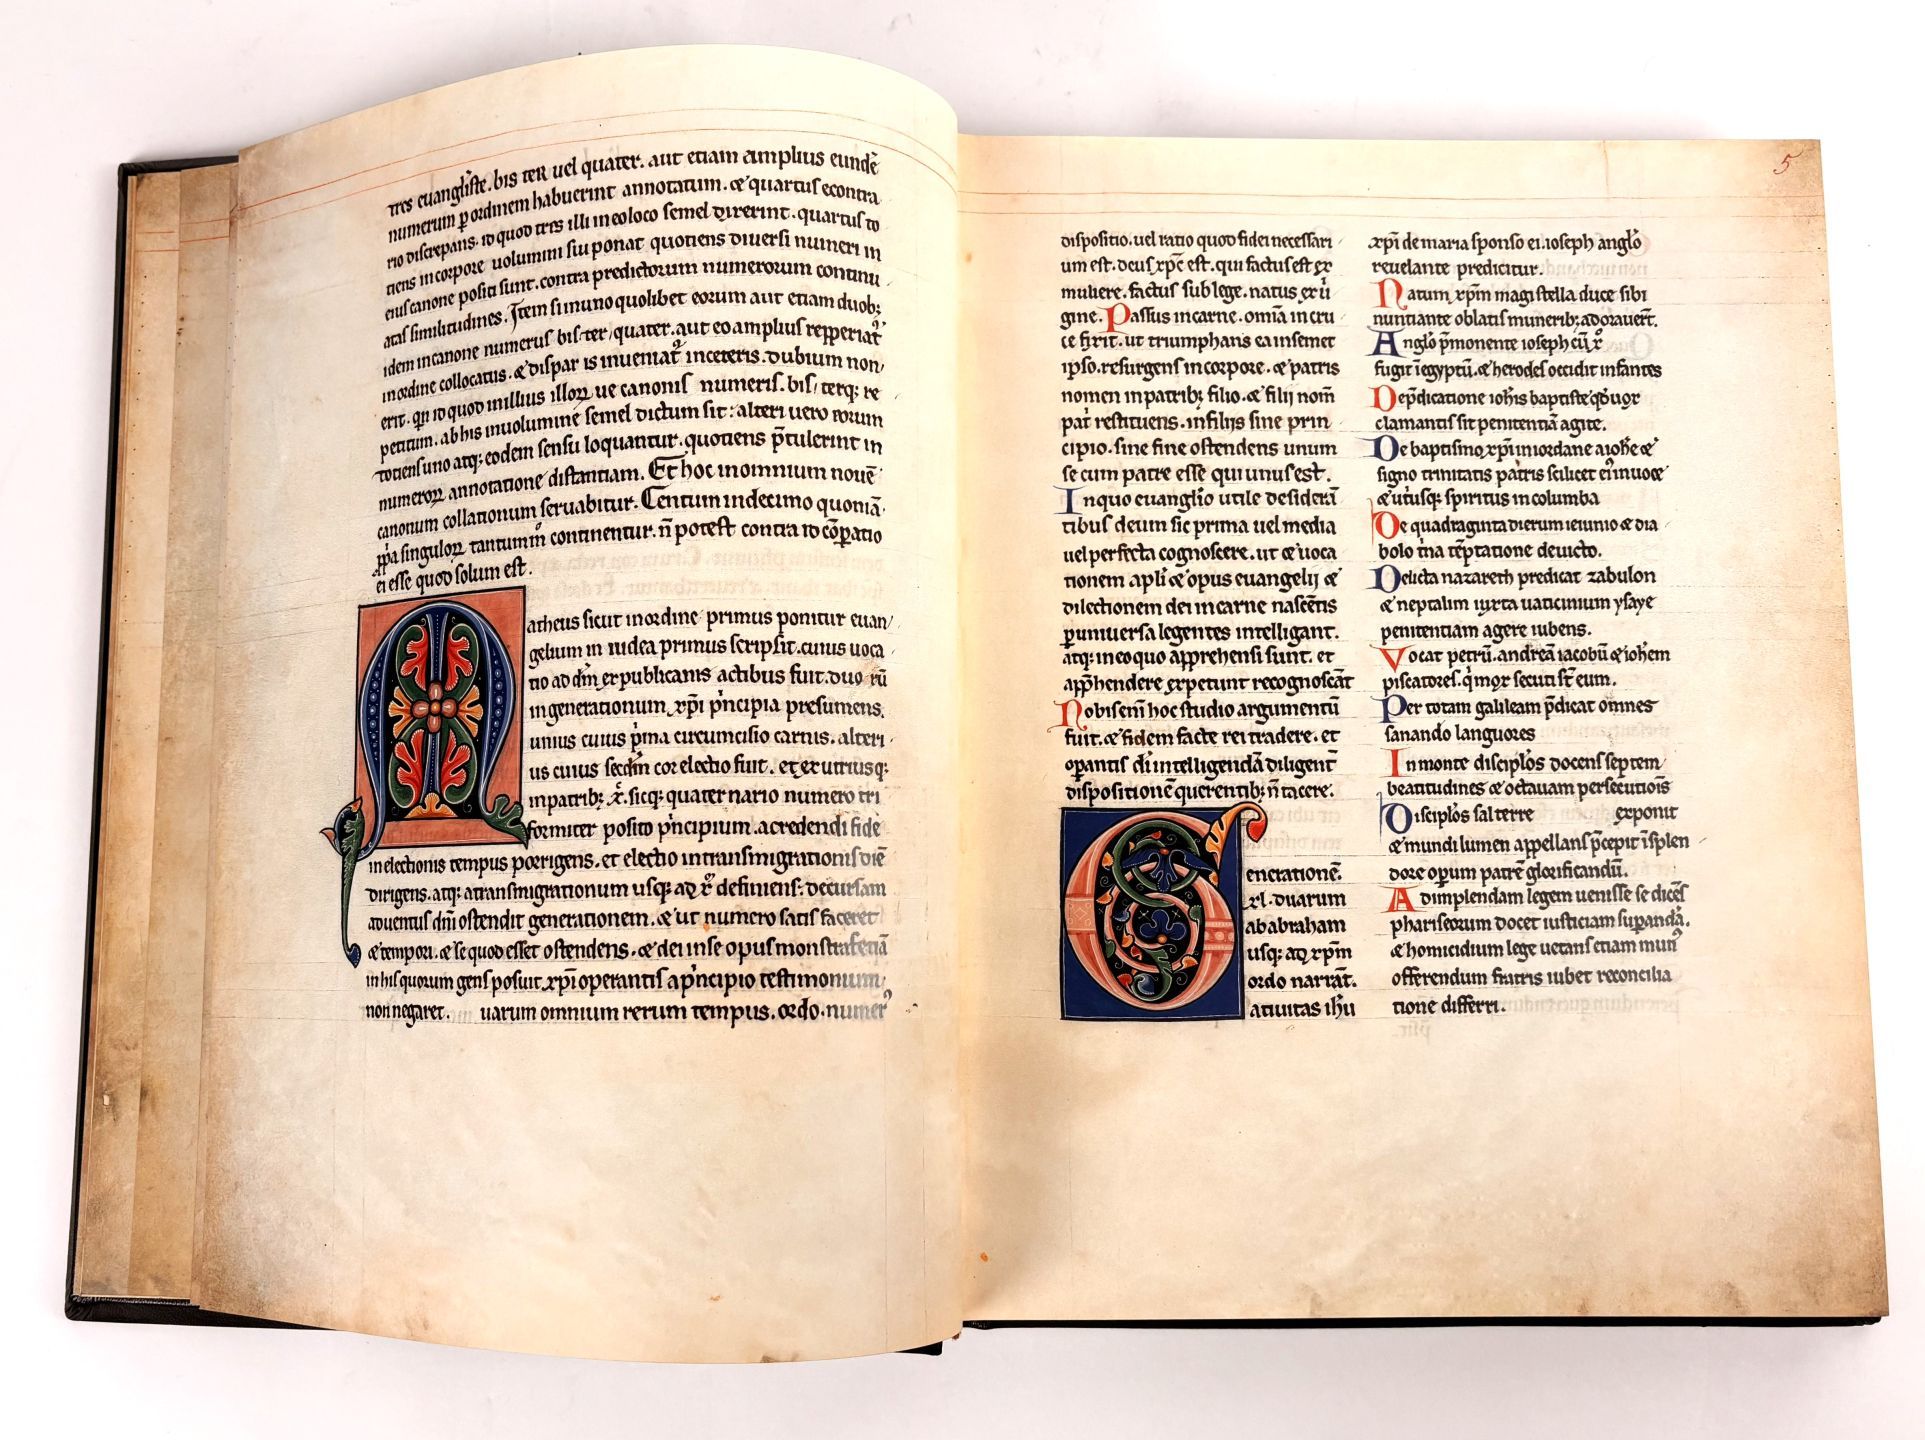 tres euangl̃iste. bis ter uel quater. aut etiam amplius eundẽ
numerum ꝑ ordinem habuerint annotatum. & quartus econtra
rio discrepans. id quod tres illi in eo loco semel dixerint. quartus to
tiens in corpore uolumini sui ponat quotiens diuersi numeri in
eius canone positi sunt. contra predictorum numerorum continu
atas similitudines. Item si in uno quolibet eorum aut etiam duobꝫ
idem in canone numerus bis. ter. quater. aut eo amplius repperiat᷑
in ordine collocatus. & dispar is inueniat᷑ in ceteris. dubium non
erit. qn̄ id quod in illius illoꝝ ue canonis numeris. bis. terqꝫ re
petitum. ab his in uolumine semel dictum sit: alteri uero eorum
totiens uno atqꝫ eodem sensu loquantur. quotiens p̄tulerint in
numeroꝝ annotatione distantiam. Et hoc in omnium nouẽ
canonum collationum seruabitur. Centum in decimo quoniã
ꝓpria singuloꝝ tantum m̊ continentur. n̄ potest contra id cõparatio
ei esse quod solum est.
Matheus sicut in ordine primus ponitur euan
gelium in iudea primus scripsit. cuius uoca
tio ad dm̄ ex publicanis actibus fuit. duo rũ
in generationum xp̄i p̍ncipia presumens.
unius cuius p̍ma circumcisio carnis. alteri
us cuius secdm̄ cor electio fuit. et ex utriusqꝫ
in patribꝫ x̄. sicqꝫ quaternario numero tri
formiter posito p̍ncipium. a credendi fide
in electionis tempus porrigens. et electio in transmigrationis diẽ
dirigens. atqꝫ a transmigrationum usqꝫ ad x̄ definiens: decursam
aduentus dn̄i ostendit generationem. & ut numero satis faceret
& tempori. & se quod esset ostendens. & dei in se opus monstrans etiã
in his quorum genus posuit. xp̄i operantis a p̍ncipio testimonium
non negaret. uarum omnium rerum tempus. ordo. numer᷒
5
dispositio. uel ratio quod fidei necessari
um est. deus xp̄c est. qui factus est ex
muliere. factus sub lege. natus ex ui
gine. Passus in carne. omĩa in cru
ce fixit. ut triumphans ea in semet
ipso. resurgens in corpore. & patris
nomen in patribꝫ filio. & filii nom̄
patri restituens. in filiis sine prin
cipio. sine fine ostendens unum
se cum patre esse qui unus est.
In quo euangl̃io utile desiderã
tibus deum sic prima uel media
uel perfecta cognoscere. ut & uoca
tionem apl̃i & opus euangelii &
dilectionem dei in carne nascẽtis
ꝑ uniuersa legentes intelligant.
atqꝫ in eo quo app̄rehensi sunt. et
app̄hendere expetunt recognoscãt
Nobis enī hoc studio argumentũ
fuit. & fidem facte rei tradere. et
oꝑantis di̅ intelligendã diligent᷑
dispositionẽ querentibꝫ n̄ tacere.
Generationẽ.
xl. duarum
ab abraham
usqꝫ ad xp̄m
ordo narrat᷑.
atiuitas ih̄u
xp̄i de maria sponso ei. ioseph angl̃o
reuelante predicitur.
Natum xp̄m magi stella duce sibi
nuntiante oblatis muneribꝫ adorauer̃t.
Angl̃o p̄monente ioseph cũ x̊
fugit ĩ egyptũ. & herodes occidit infantes
De p̄dicatione ioh̄is baptiste qđ uox
clamantis sit penitentiã agite.
De baptismo xp̄i in iordane a ioh̄e &
signo trinitatis patris scilicet eĩ in uoce
& utiusqꝫ spiritus in columba
De quadraginta dierum ieiunio & dia
bolo t̍na tẽptatione deuicto.
Delicta nazareth predicat zabulon
& neptalim iuxta uaticinium ysaye
penitentiam agere iubens.
Vocat petrũ. andreã iacobũ & ioh̄em
piscatores. q̍ mox secuti st̄ eum.
Per totam galileam p̄dicat omnes
sanando languores
In monte discipl̃os docens septem
beatitudines & octauam persecutiõis
Discipl̃os sal terre exponit
& mundi lumen appellans p̄cepit ĩ splen
dore oꝑum patrẽ glorificandũ.
Adimplendam legem uenisse se dicẽs
phariseorum docet iusticiam suꝑandã.
& homicidium lege uetans etiam mun᷒
offerendum fratris iubet reconcilia
tione differri.